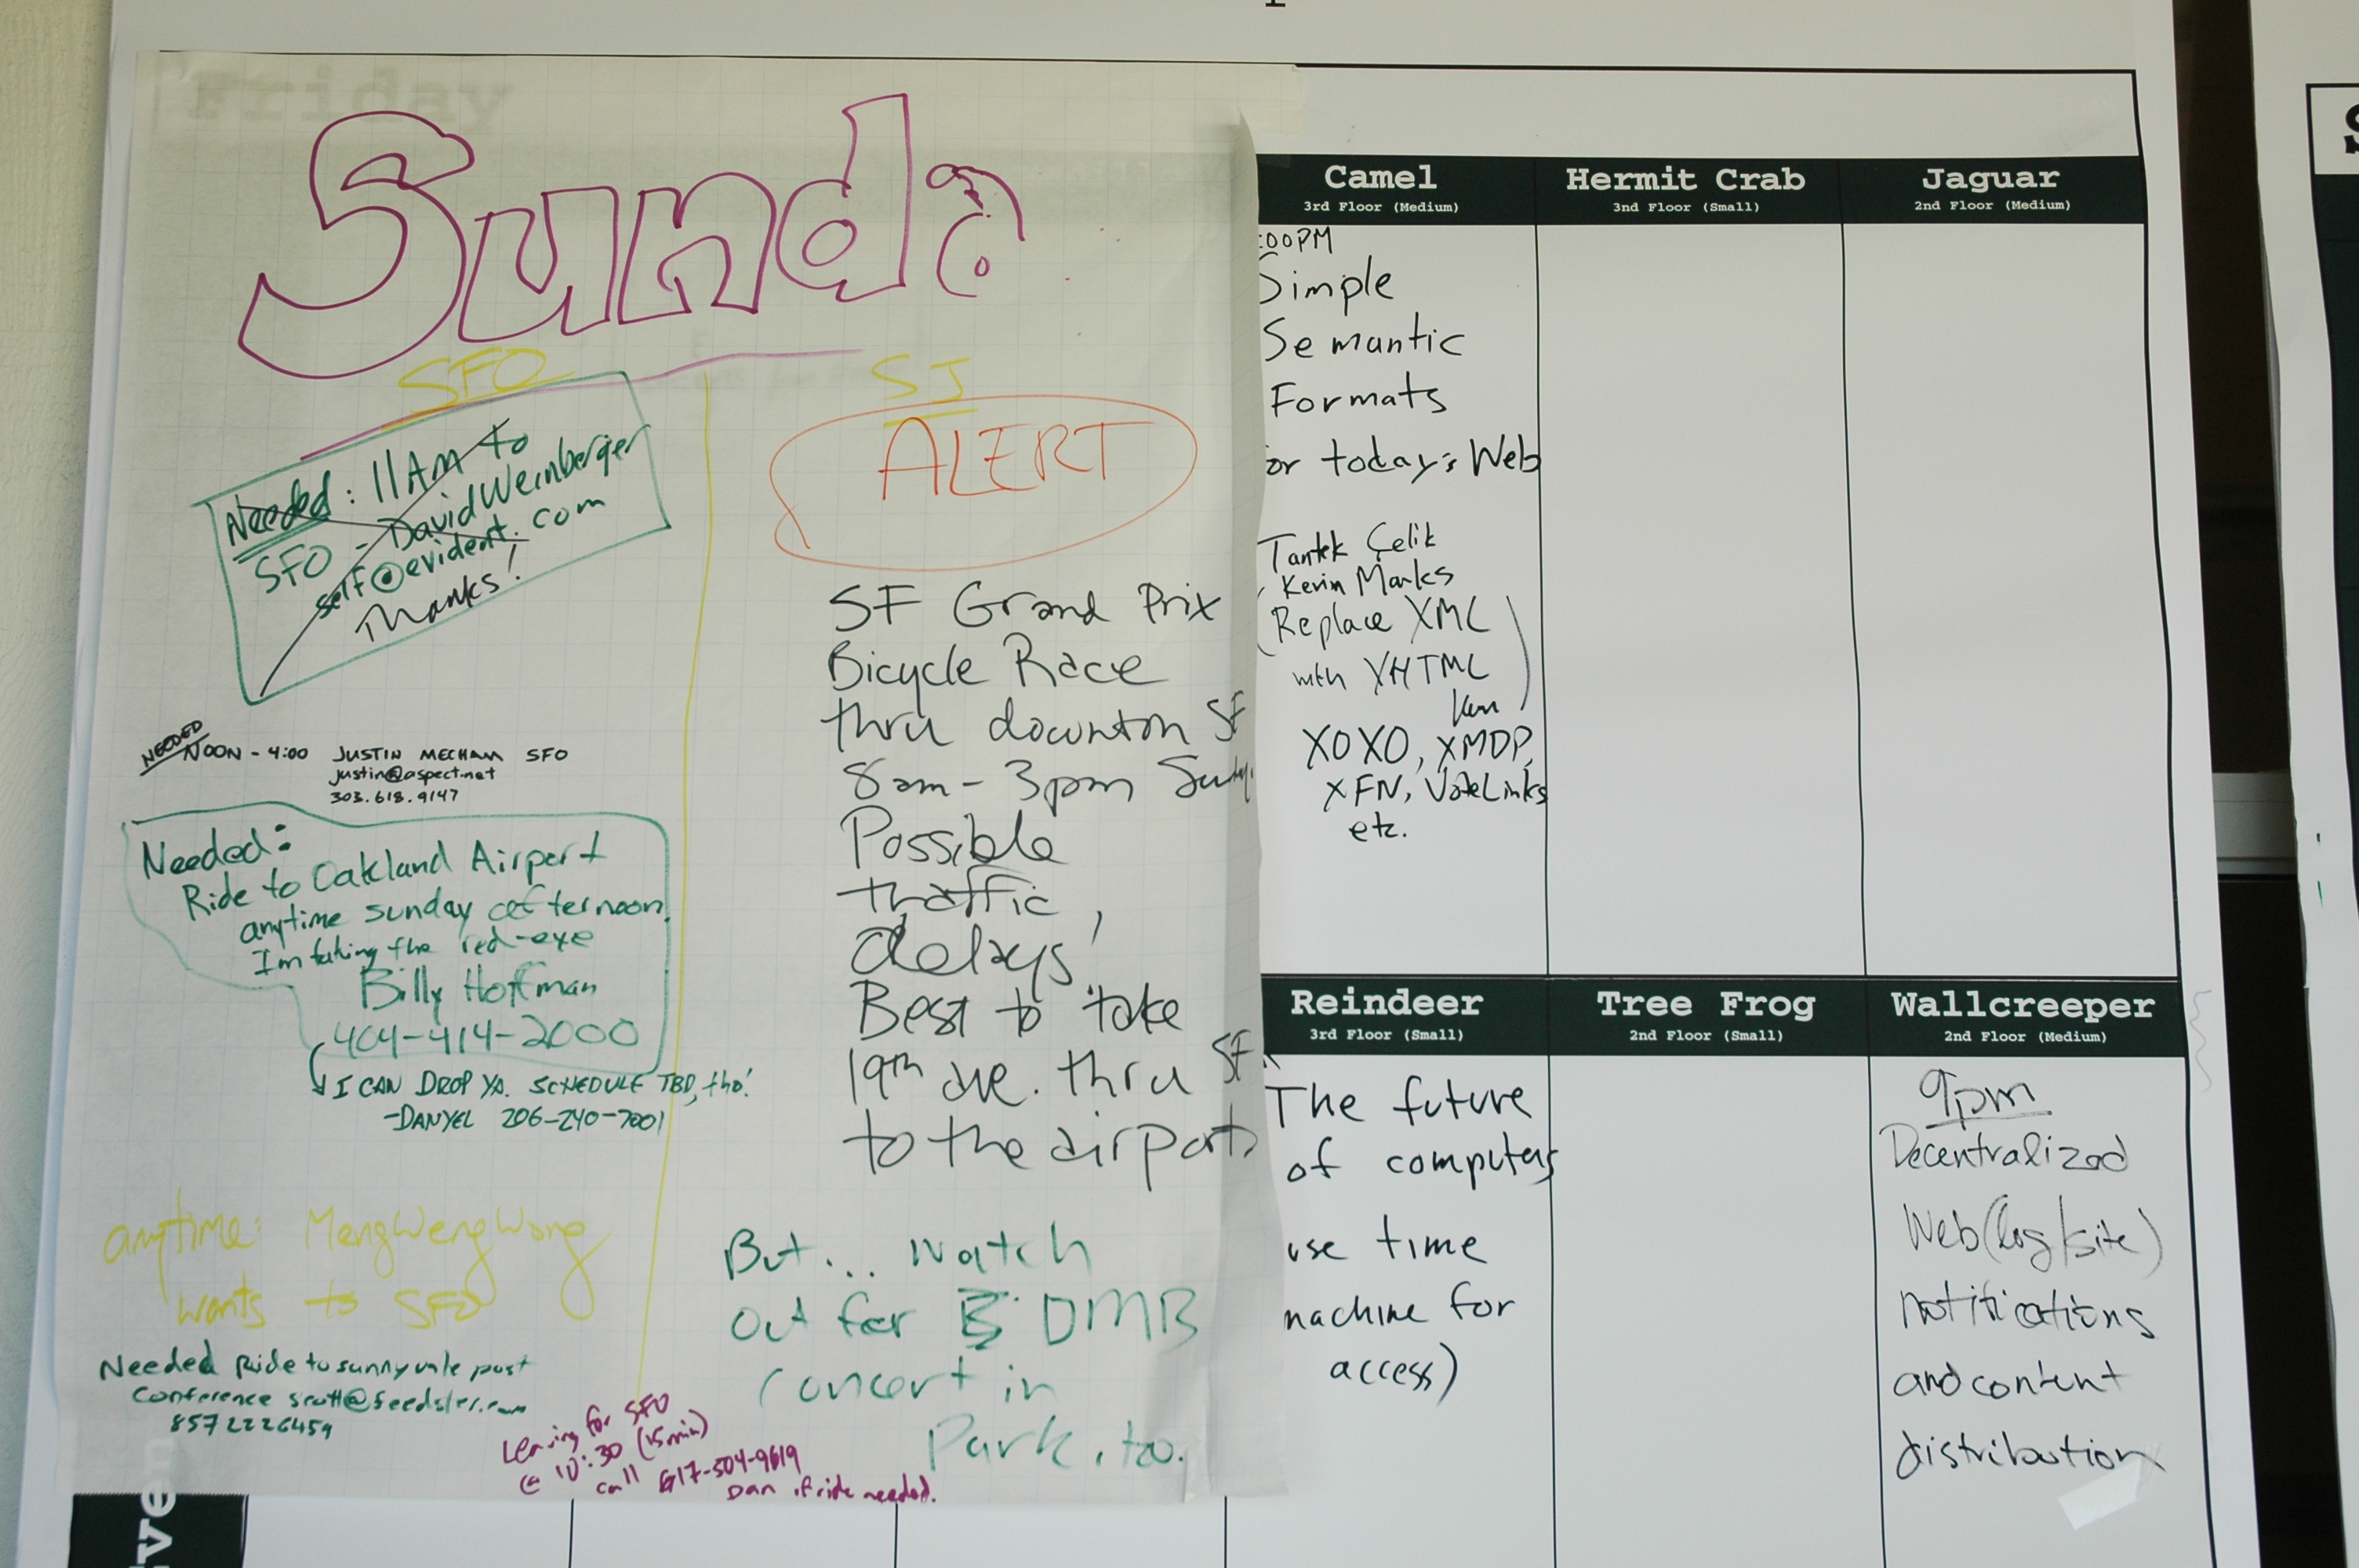 Friday
Sunda
SFO
SJ
Needed: 11AM to
SFO - David Weinberger
self@evident.com
Thanks!
NEEDED
NOON - 4:00 JUSTIN MECHAM SFO
justin@aspect.net
303.618.9147
Needed:
Ride to Oakland Airport
anytime sunday afternoon
I'm taking the red-eye
Billy Hoffman
404-414-2000
I CAN DROP YA. SCHEDULE TBD, tho!
-DANYEL 206-240-7001
anytime: MengWengWong
wants to SFO
Needed Ride to sunnyvale post
Conference scott@feedster.com
857 222 6459
Leaving for SFO
@ 10:30 (15min)
call 617-504-9619
Dan if ride needed.
ALERT
SF Grand Prix
Bicycle Race
thru downton SF
8am - 3pm Sunday.
Possible
traffic
delays!
Best to take
19th ave. thru SF
to the airport
But... watch
out for DMB
Concert in
Park, too.
Camel
3rd Floor (Medium)
:00PM
Simple
Semantic
Formats
or today's Web
Tantek Çelik
Kevin Marks
(Replace XML
with XHTML)
XOXO, XMDP,
XFN, VoteLinks
etc.
Hermit Crab
3nd Floor (Small)
Jaguar
2nd Floor (Medium)
Reindeer
3rd Floor (Small)
The future
of computers
use time
machine for
access)
Tree Frog
2nd Floor (Small)
Wallcreeper
2nd Floor (Medium)
9pm
Decentralized
Web(log/site)
notifications
and content
distribution
ven
S